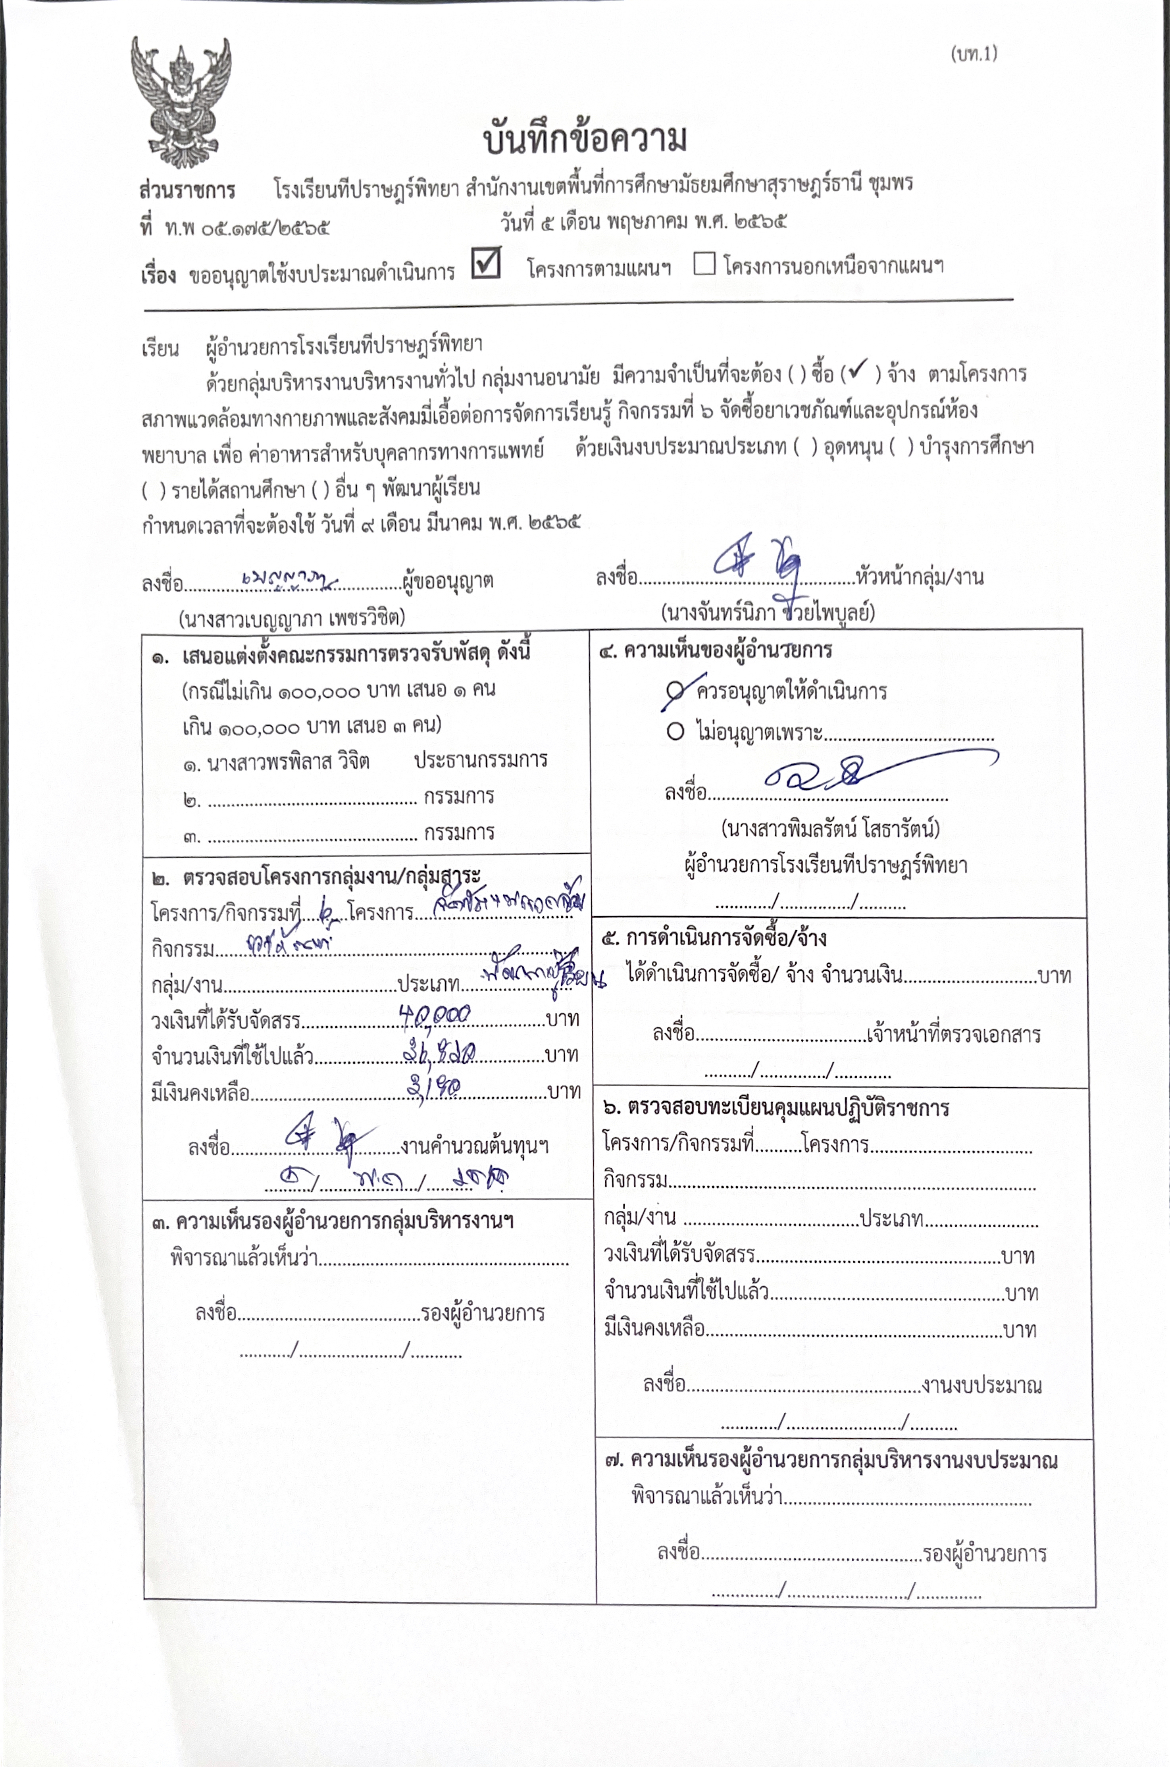 (บท.1)
บันทึกข้อความ
ส่วนราชการ โรงเรียนทีปราษฎร์พิทยา สำนักงานเขตพื้นที่การศึกษามัธยมศึกษาสุราษฎร์ธานี ชุมพร
ที่ ท.พ ๐๕.๑๗๕/๒๕๖๕ วันที่ ๕ เดือน พฤษภาคม พ.ศ. ๒๕๖๕
เรื่อง ขออนุญาตใช้งบประมาณดำเนินการ ☑ โครงการตามแผนฯ ☐ โครงการนอกเหนือจากแผนฯ
เรียน ผู้อำนวยการโรงเรียนทีปราษฎร์พิทยา
ด้วยกลุ่มบริหารงานบริหารงานทั่วไป กลุ่มงานอนามัย มีความจำเป็นที่จะต้อง ( ) ซื้อ (✓ ) จ้าง ตามโครงการ
สภาพแวดล้อมทางกายภาพและสังคมมี่เอื้อต่อการจัดการเรียนรู้ กิจกรรมที่ ๖ จัดซื้อยาเวชภัณฑ์และอุปกรณ์ห้อง
พยาบาล เพื่อ ค่าอาหารสำหรับบุคลากรทางการแพทย์ ด้วยเงินงบประมาณประเภท ( ) อุดหนุน ( ) บำรุงการศึกษา
( ) รายได้สถานศึกษา ( ) อื่น ๆ พัฒนาผู้เรียน
กำหนดเวลาที่จะต้องใช้ วันที่ ๙ เดือน มีนาคม พ.ศ. ๒๕๖๕
ลงชื่อ...เบญญาภา...ผู้ขออนุญาต ลงชื่อ......หัวหน้ากลุ่ม/งาน
(นางสาวเบญญาภา เพชรวิชิต) (นางจันทร์นิภา ช่วยไพบูลย์)
๑. เสนอแต่งตั้งคณะกรรมการตรวจรับพัสดุ ดังนี้
(กรณีไม่เกิน ๑๐๐,๐๐๐ บาท เสนอ ๑ คน
เกิน ๑๐๐,๐๐๐ บาท เสนอ ๓ คน)
๑. นางสาวพรพิลาส วิจิต ประธานกรรมการ
๒. ...... กรรมการ
๓. ...... กรรมการ
๒. ตรวจสอบโครงการกลุ่มงาน/กลุ่มสาระ
โครงการ/กิจกรรมที่...๖...โครงการ......
กิจกรรม......
กลุ่ม/งาน......ประเภท...พัฒนาผู้เรียน
วงเงินที่ได้รับจัดสรร...40,000...บาท
จำนวนเงินที่ใช้ไปแล้ว......บาท
มีเงินคงเหลือ......บาท
ลงชื่อ......งานคำนวณต้นทุนฯ
....../...พ.ค..../......
๓. ความเห็นรองผู้อำนวยการกลุ่มบริหารงานฯ
พิจารณาแล้วเห็นว่า......
ลงชื่อ......รองผู้อำนวยการ
....../....../......
๔. ความเห็นของผู้อำนวยการ
ควรอนุญาตให้ดำเนินการ
ไม่อนุญาตเพราะ......
ลงชื่อ......
(นางสาวพิมลรัตน์ โสธารัตน์)
ผู้อำนวยการโรงเรียนทีปราษฎร์พิทยา
....../....../......
๕. การดำเนินการจัดซื้อ/จ้าง
ได้ดำเนินการจัดซื้อ/ จ้าง จำนวนเงิน......บาท
ลงชื่อ......เจ้าหน้าที่ตรวจเอกสาร
....../....../......
๖. ตรวจสอบทะเบียนคุมแผนปฏิบัติราชการ
โครงการ/กิจกรรมที่......โครงการ......
กิจกรรม......
กลุ่ม/งาน ......ประเภท......
วงเงินที่ได้รับจัดสรร......บาท
จำนวนเงินที่ใช้ไปแล้ว......บาท
มีเงินคงเหลือ......บาท
ลงชื่อ......งานงบประมาณ
....../....../......
๗. ความเห็นรองผู้อำนวยการกลุ่มบริหารงานงบประมาณ
พิจารณาแล้วเห็นว่า......
ลงชื่อ......รองผู้อำนวยการ
....../....../......